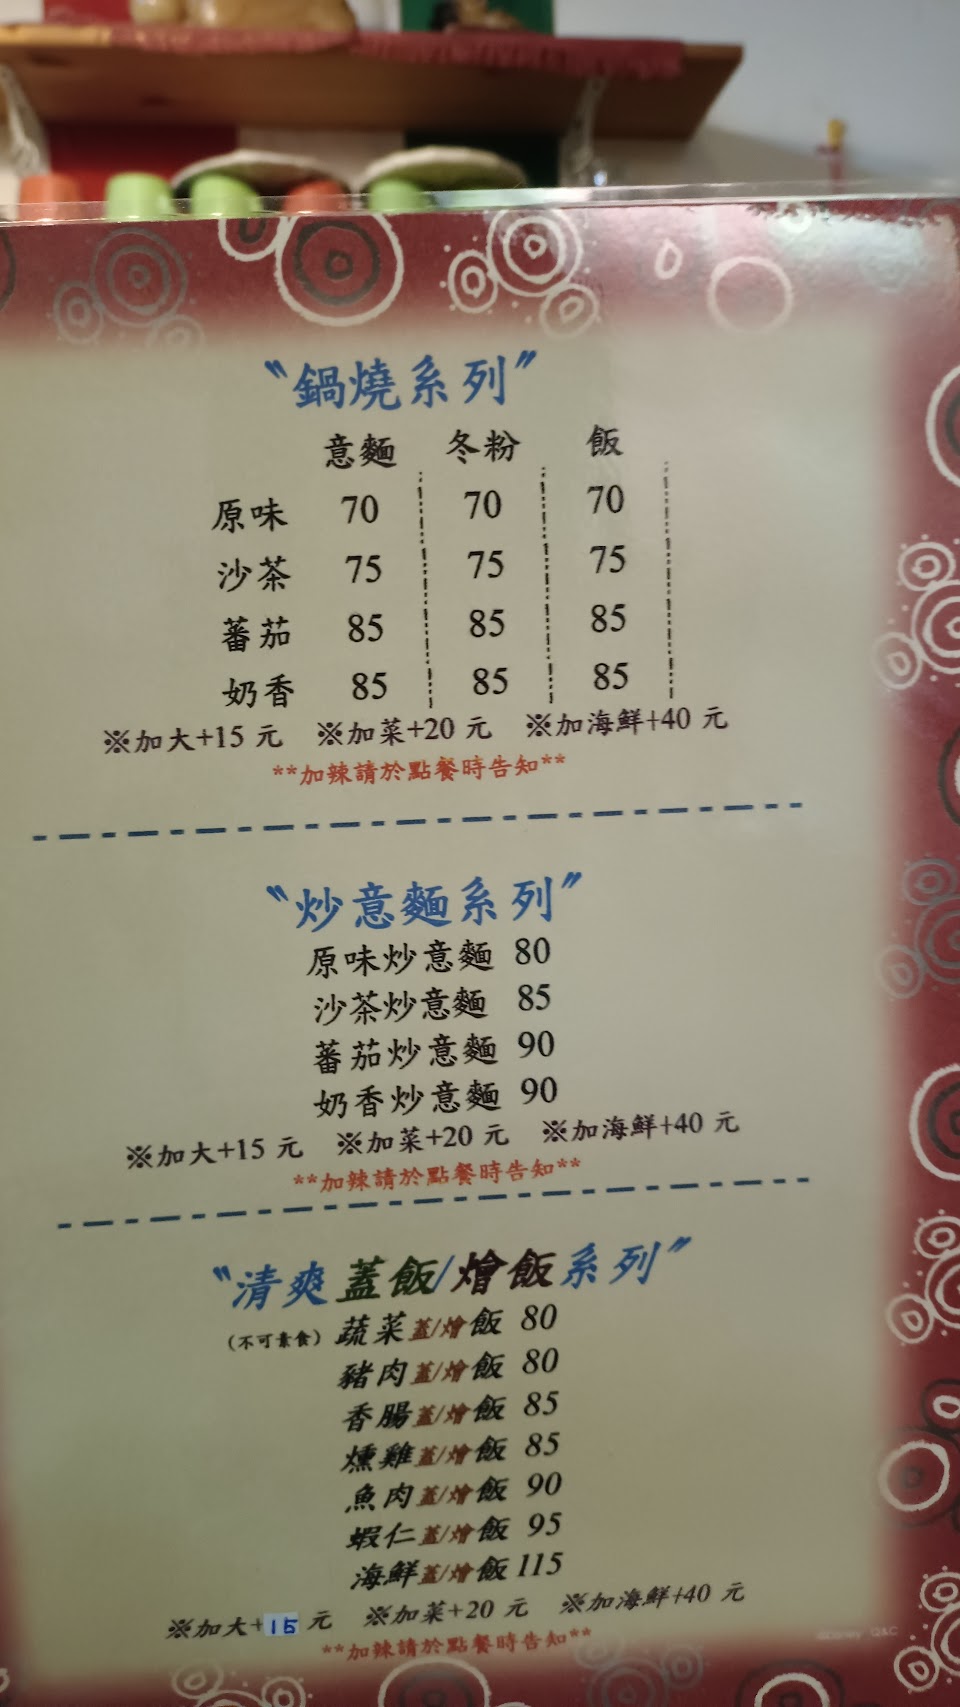 〝鍋燒系列〞
意麵 冬粉 飯
原味 70 70 70
沙茶 75 75 75
蕃茄 85 85 85
奶香 85 85 85
※加大+15 元 ※加菜+20 元 ※加海鮮+40 元
**加辣請於點餐時告知**
〝炒意麵系列〞
原味炒意麵 80
沙茶炒意麵 85
蕃茄炒意麵 90
奶香炒意麵 90
※加大+15 元 ※加菜+20 元 ※加海鮮+40 元
**加辣請於點餐時告知**
〝清爽蓋飯/燴飯系列〞
(不可素食) 蔬菜蓋/燴飯 80
豬肉蓋/燴飯 80
香腸蓋/燴飯 85
燻雞蓋/燴飯 85
魚肉蓋/燴飯 90
蝦仁蓋/燴飯 95
海鮮蓋/燴飯 115
※加大+15 元 ※加菜+20 元 ※加海鮮+40 元
**加辣請於點餐時告知**